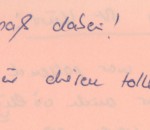 paß dabei!
ür diesen toll